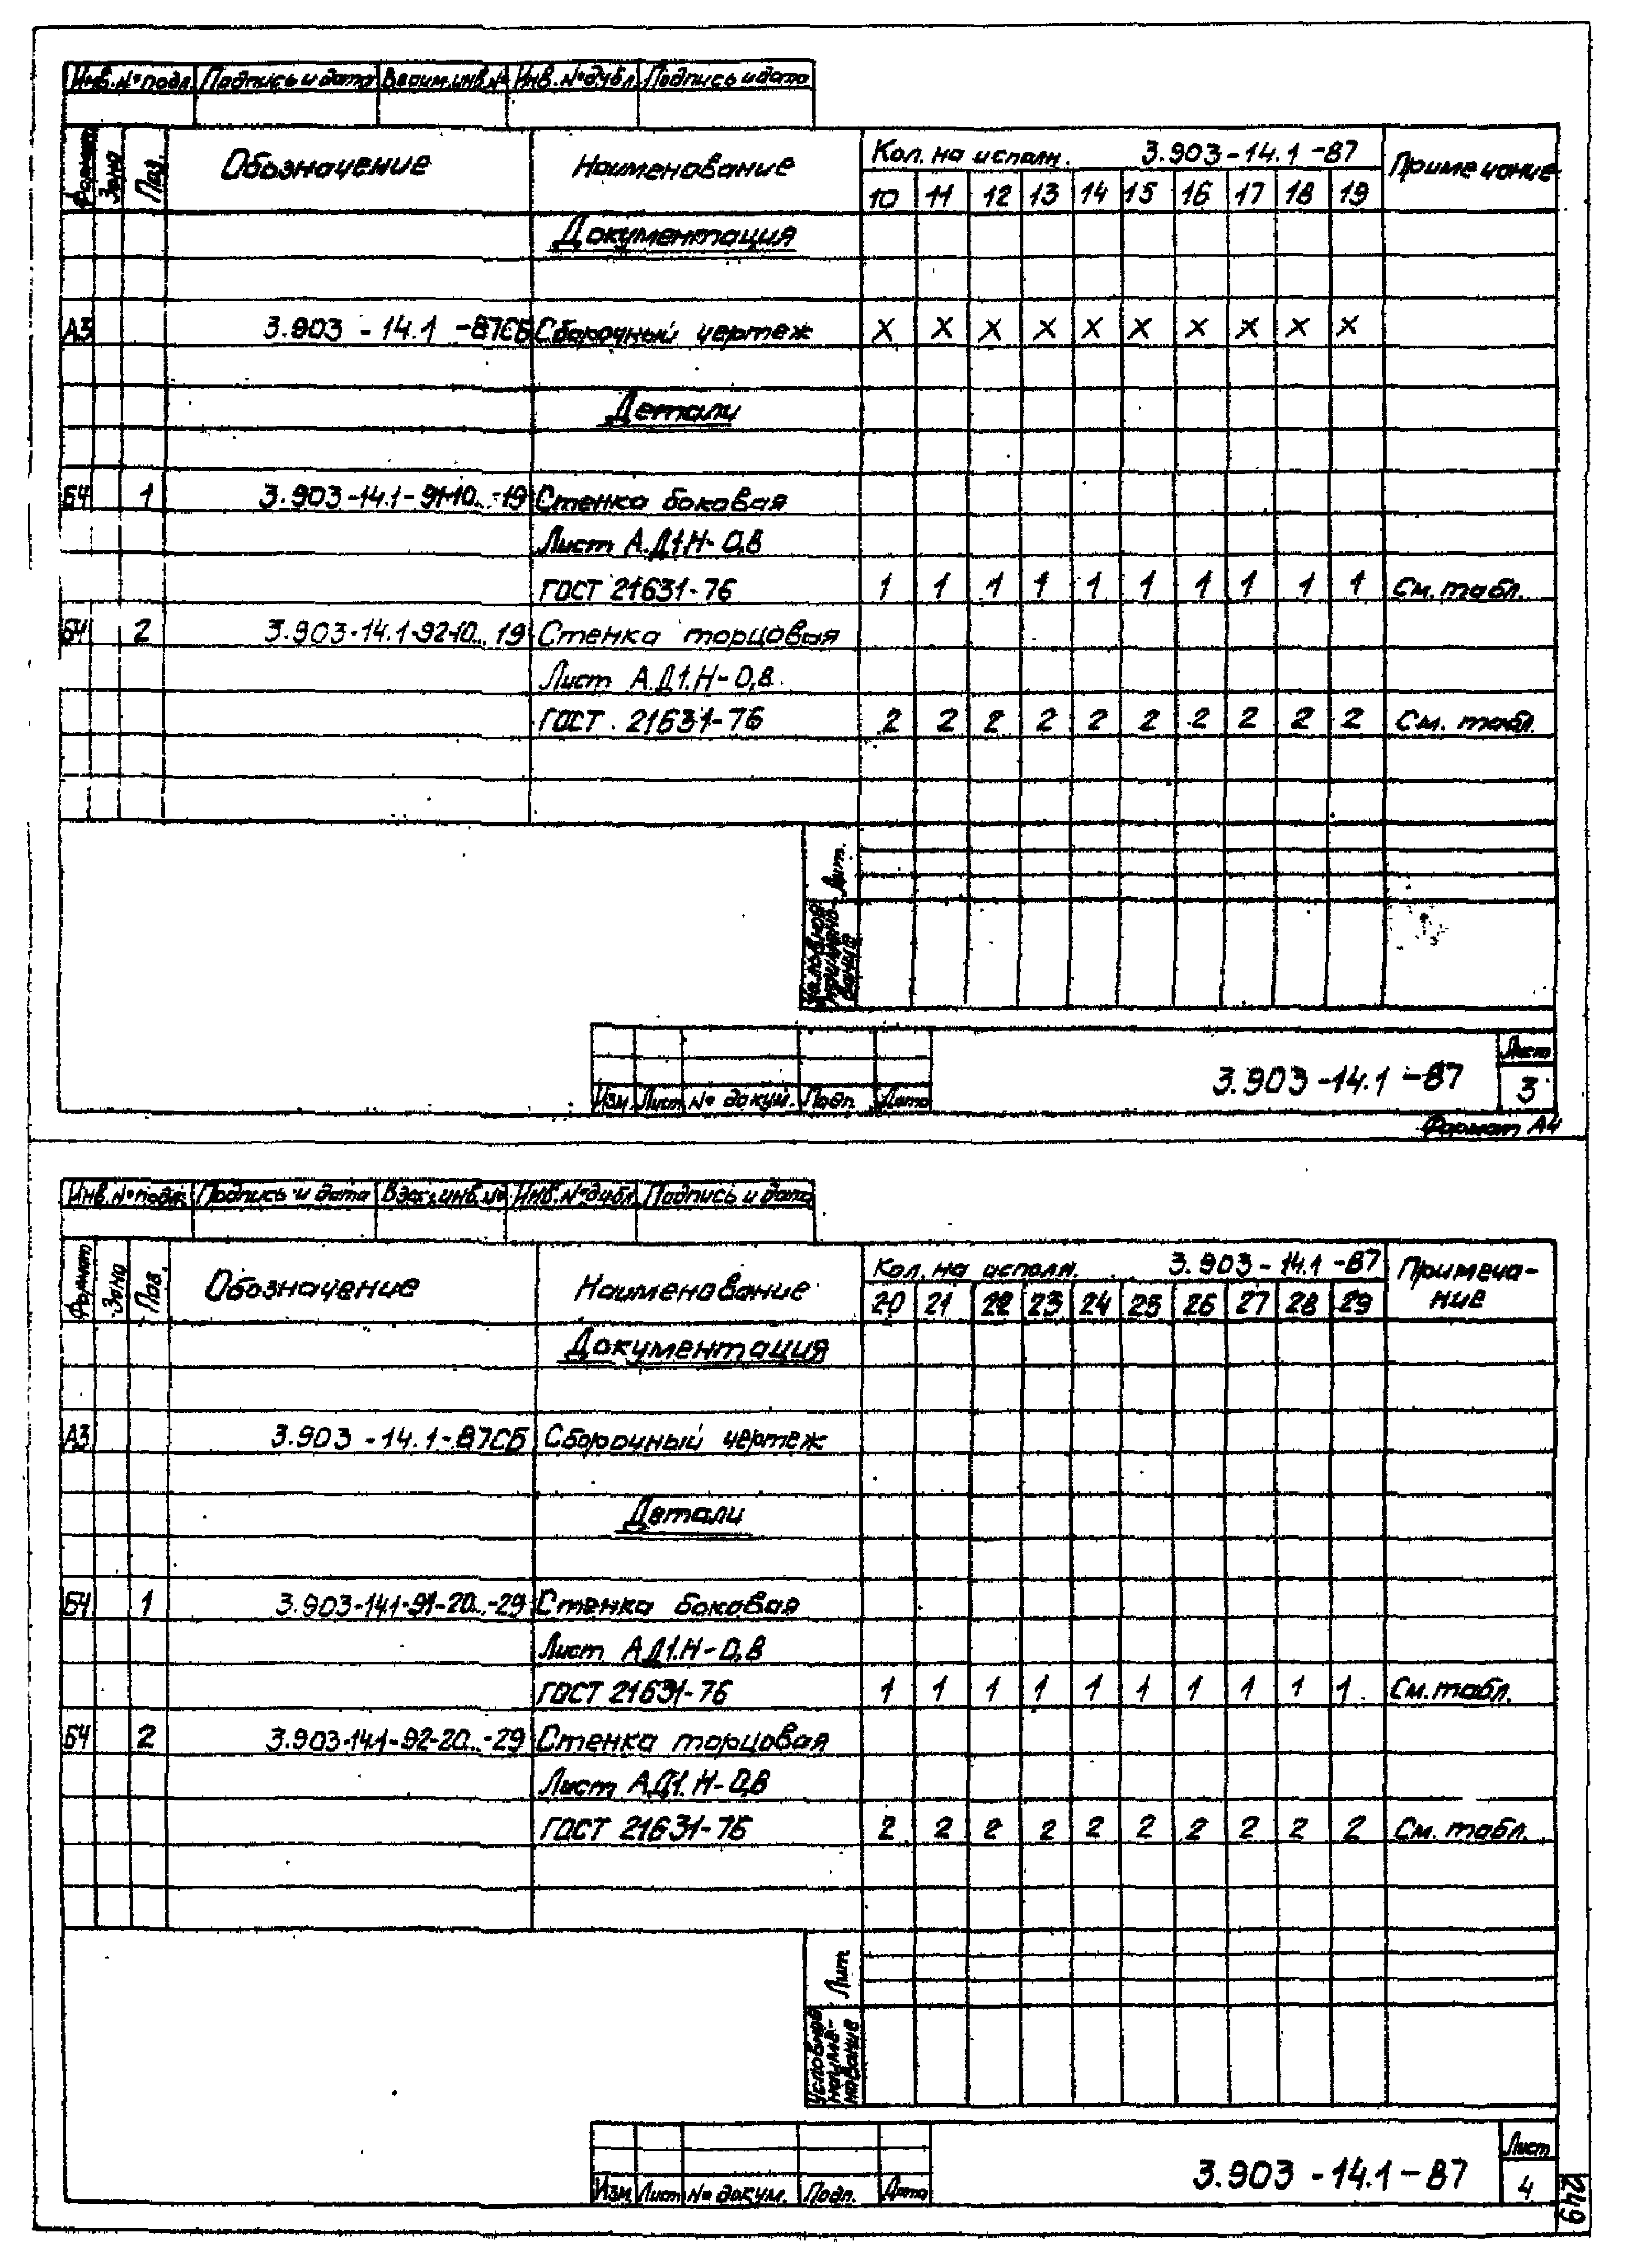 Инв.№ подл. Подпись и дата Взаим.инв.№ Инв.№ дубл. Подпись и дата
Формат Зона Поз. Обозначение Наименование Кол. на исполн. 3.903-14.1-87 Примечание
10 11 12 13 14 15 16 17 18 19
Документация
А3 3.903-14.1-87СБ Сборочный чертеж X X X X X X X X X X
Детали
Б4 1 3.903-14.1-91-10...-19 Стенка боковая
Лист А.Д1.Н-0,8
ГОСТ 21631-76 1 1 1 1 1 1 1 1 1 1 См. табл.
Б4 2 3.903-14.1-92-10...19 Стенка торцовая
Лист А.Д1.Н-0,8
ГОСТ 21631-76 2 2 2 2 2 2 2 2 2 2 См. табл.
Лит.
Условное наименование
3.903-14.1-87 Лист
3
Изм. Лист № докум. Подп. Дата
Формат А4
Инв.№ подл. Подпись и дата Взаи.инв.№ Инв.№ дубл. Подпись и дата
Формат Зона Поз. Обозначение Наименование Кол. на исполн. 3.903-14.1-87 Примеча-
ние
20 21 22 23 24 25 26 27 28 29
Документация
А3 3.903-14.1-87СБ Сборочный чертеж
Детали
Б4 1 3.903-14.1-91-20...-29 Стенка боковая
Лист АД1.Н-0,8
ГОСТ 21631-76 1 1 1 1 1 1 1 1 1 1 См. табл.
Б4 2 3.903-14.1-92-20...-29 Стенка торцовая
Лист АД1.Н-0,8
ГОСТ 21631-76 2 2 2 2 2 2 2 2 2 2 См. табл.
Лит
Условное
наиме-
нование
3.903-14.1-87 Лист
4
Изм. Лист № докум. Подп. Дата
249